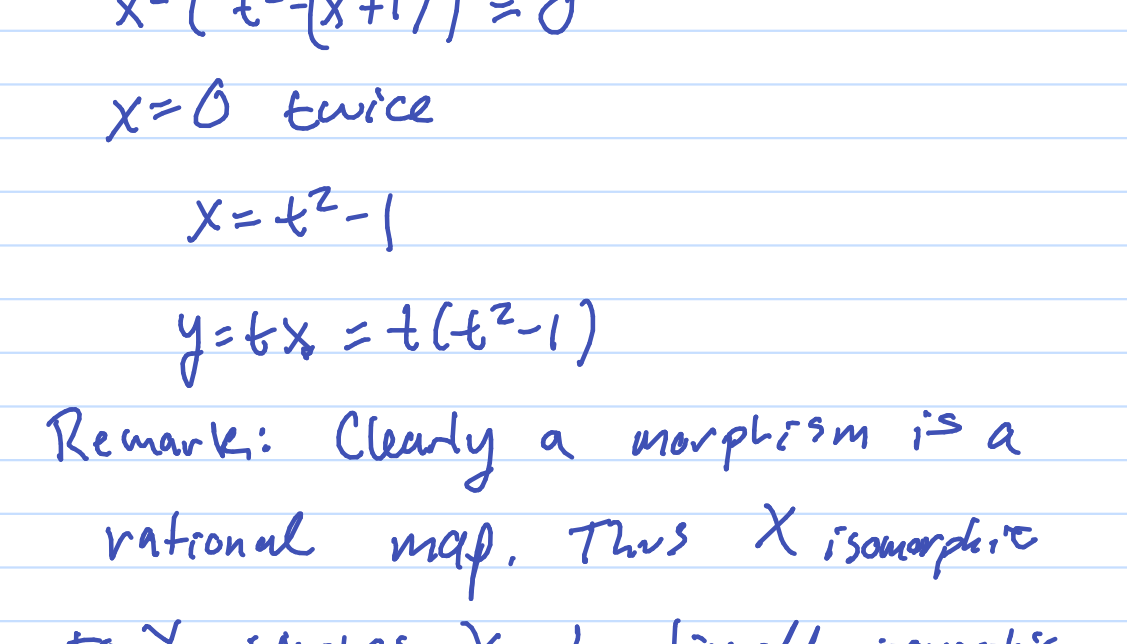 x² (t² - (x+1)) = 0
x=0 twice
x = t² - 1
y = tx = t(t² - 1)
Remark: Clearly a morphism is a
rational map. Thus X isomorphic
to Y implies X